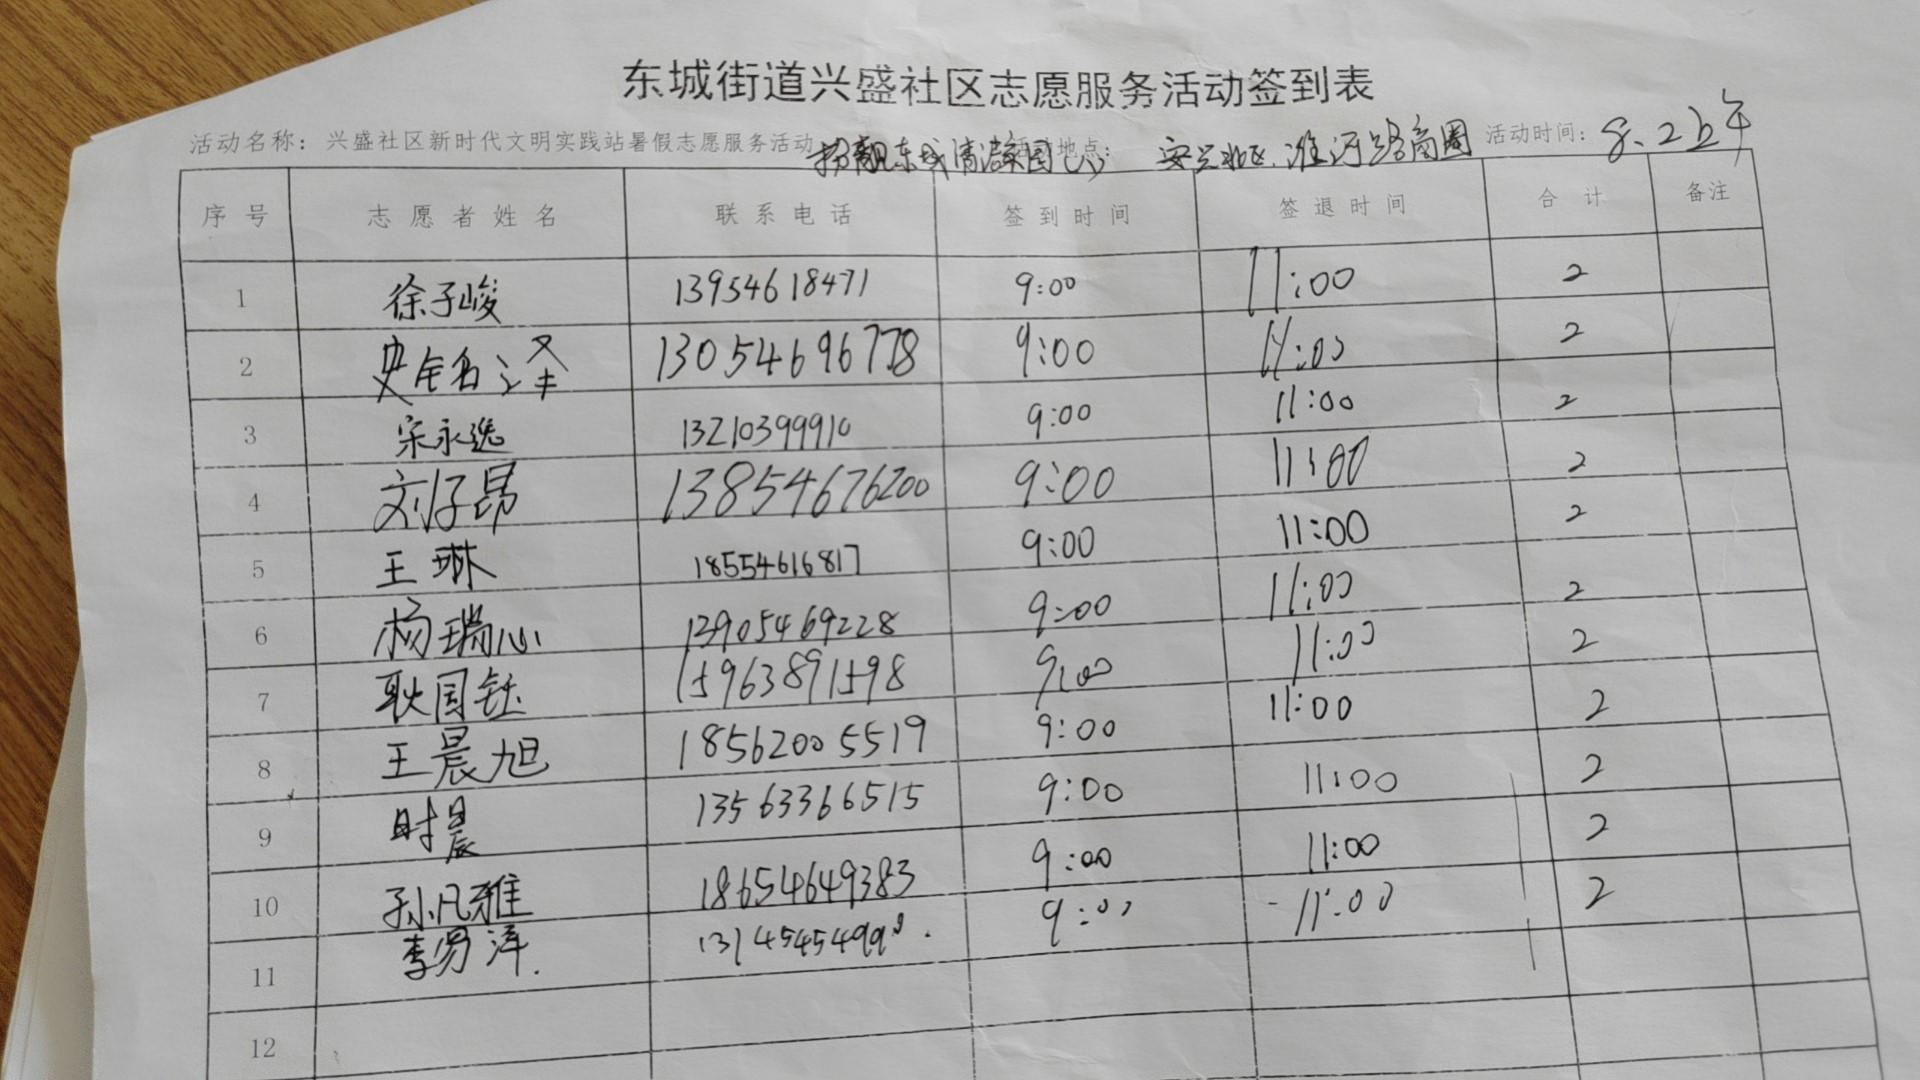 东城街道兴盛社区志愿服务活动签到表
活动名称：兴盛社区新时代文明实践站暑假志愿服务活动 活动地点： 淮河路商圈 活动时间：8.2上午
序号 志愿者姓名 联系电话 签到时间 签退时间 合计 备注
1 徐子峻 13954618471 9:00 11:00 2
2 史 泽 13054696778 9:00 11:00 2
3 宋永逸 13210399910 9:00 11:00 2
4 刘仔昂 13854676200 9:00 11:00 2
5 王琳 18554616817 9:00 11:00 2
6 杨瑞心 13905469228 9:00 11:00 2
7 耿国钰 15963891598 9:00 11:00 2
8 王晨旭 18562005519 9:00 11:00 2
9 时晨 13563366515 9:00 11:00 2
10 孙凡雅 18654649383 9:00 11:00 2
11 李易泽 9:00 11:00 2
12